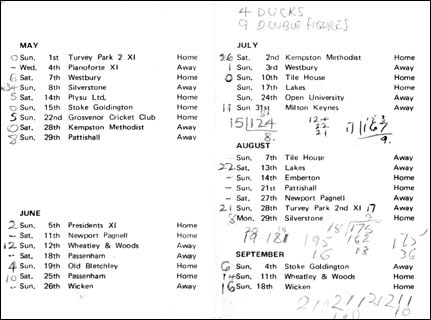 4 DUCKS
9 DOUBLE FIGURES
MAY
0 Sun. 1st Turvey Park 2 XI Home
- Wed. 4th Pianoforte XI Away
6 Sat. 7th Westbury Home
N34 Sun. 8th Silverstone Away
5 Sat. 14th Plysu Ltd, Home
0 Sun. 15th Stoke Goldington Home
5 Sun. 22nd Grosvenor Cricket Club Home
0 Sat. 28th Kempston Methodist Away
8 Sun. 29th Pattishall Away
JUNE
2 Sun. 5th Presidents XI Home
- Sat. 11th Newport Pagnell Home
12 Sun. 12th Wheatley & Woods Away
- Sat. 18th Passenham Away
4 Sun. 19th Old Bletchley Home
10 Sat. 25th Passenham Home
- Sun. 26th Wicken Away
JULY
26 Sat. 2nd Kempston Methodist Home
1 Sun. 3rd Westbury Away
0 Sun. 10th Tile House Home
- Sun. 17th Lakes Home
Sun. 24th Open University Away
11 Sun 31st Milton Keynes Away
15 124
8.
124
22
21
17 167
9.
AUGUST
Sun. 7th Tile House Away
22 Sat. 13th Lakes Away
- Sun. 14th Emberton Home
- Sun. 21st Pattishall Home
- Sat. 27th Newport Pagnell Away
21 Sun. 28th Turvey Park 2nd XI 17 Away
8 Mon. 29th Silverstone Home
18 175
162
195
16
175
36
SEPTEMBER
6 Sun. 4th Stoke Goldington Away
14 Sun. 11th Wheatley & Woods Home
16 Sun. 18th Wicken Home